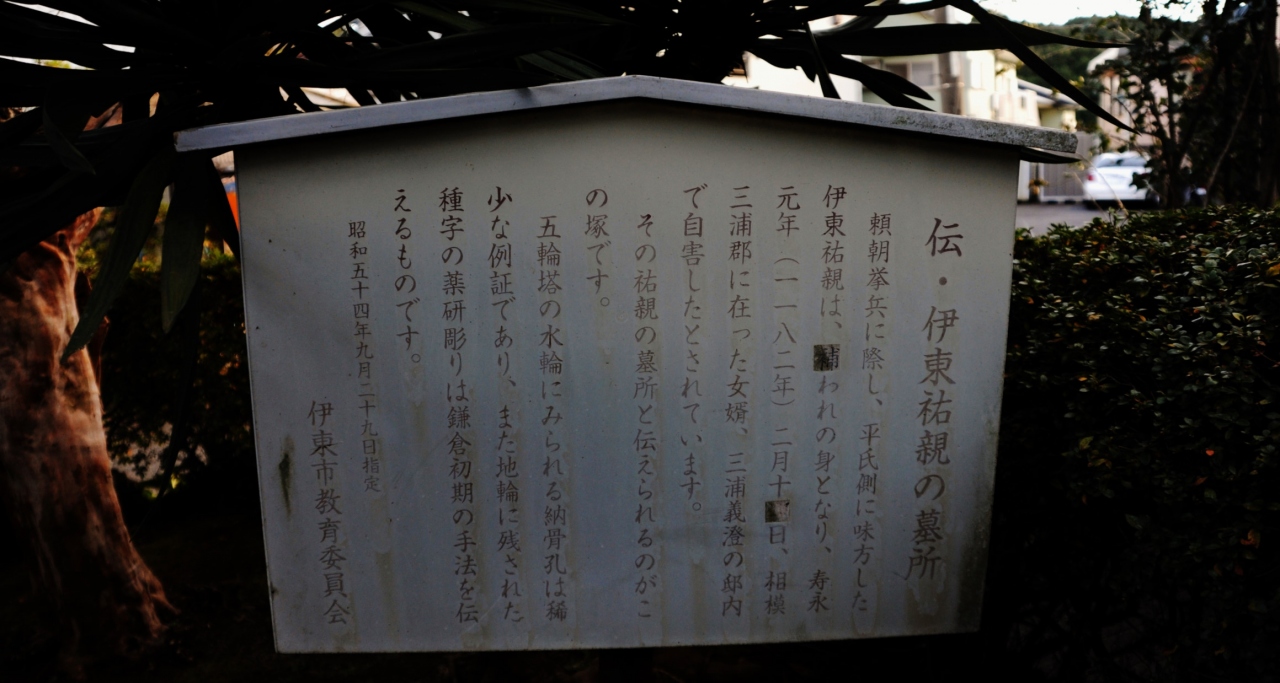 伝・伊東祐親の墓所
頼朝挙兵に際し、平氏側に味方した
伊東祐親は、捕われの身となり、寿永
元年（一一八二年）二月十日、相模
三浦郡に在った女婿、三浦義澄の邸内
で自害したとされています。
その祐親の墓所と伝えられるのがこ
の塚です。
五輪塔の水輪にみられる納骨孔は稀
少な例証であり、また地輪に残された
種字の薬研彫りは鎌倉初期の手法を伝
えるものです。
昭和五十四年九月二十九日指定
伊東市教育委員会